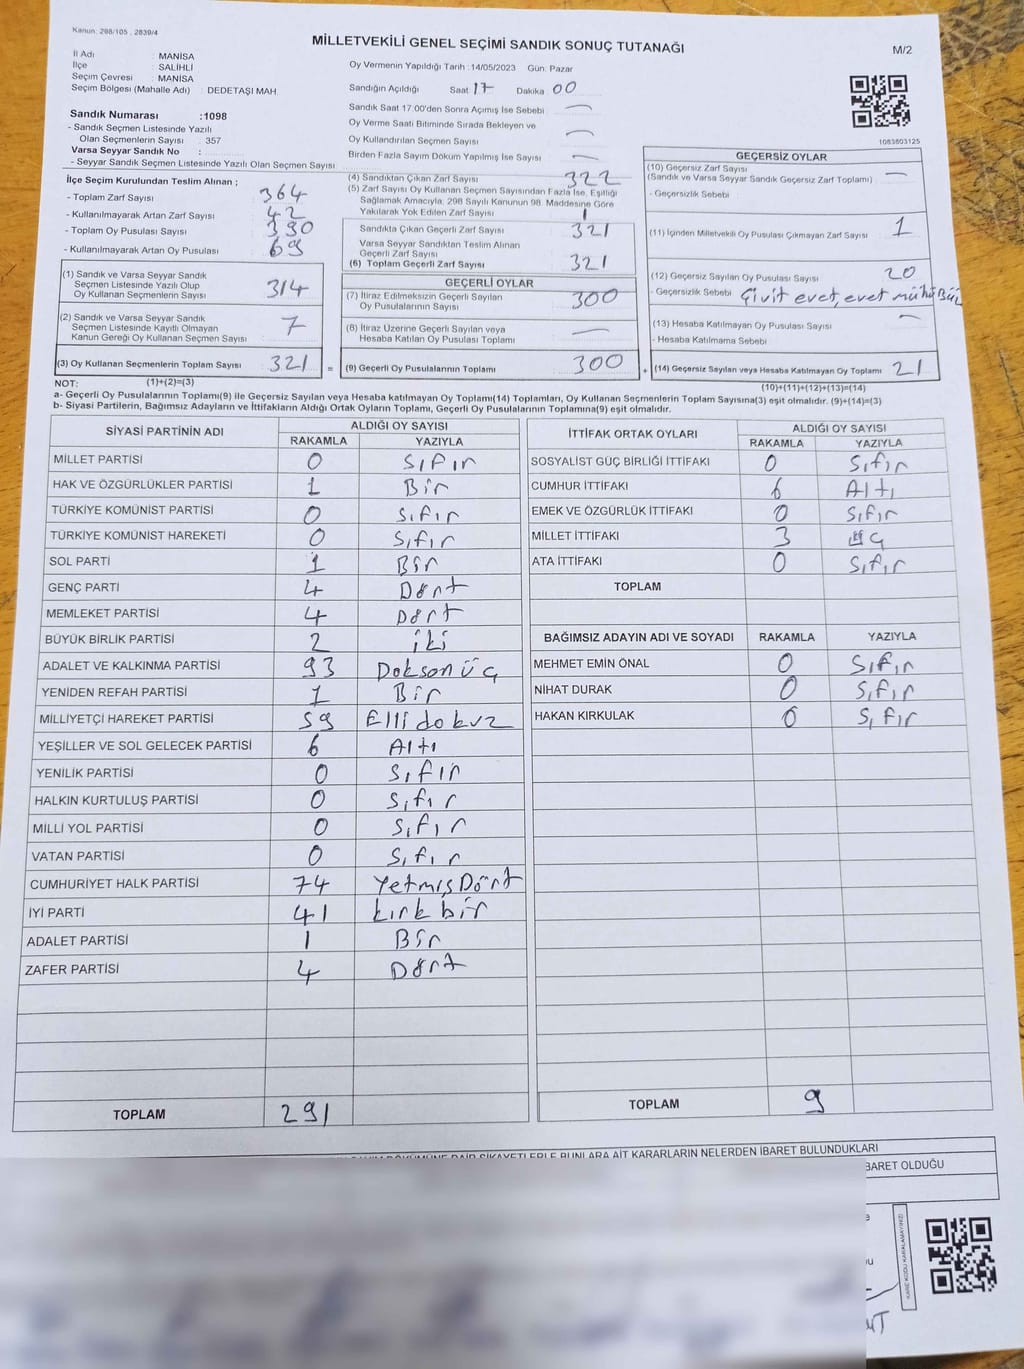 Kanun: 298/105 , 2839/4
MİLLETVEKİLİ GENEL SEÇİMİ SANDIK SONUÇ TUTANAĞI
M/2
İl Adı : MANİSA
İlçe : SALİHLİ
Seçim Çevresi : MANİSA
Seçim Bölgesi (Mahalle Adı) : DEDETAŞI MAH.
Sandık Numarası :1098
- Sandık Seçmen Listesinde Yazılı
Olan Seçmenlerin Sayısı : 357
Varsa Seyyar Sandık No :
- Seyyar Sandık Seçmen Listesinde Yazılı Olan Seçmen Sayısı
Oy Vermenin Yapıldığı Tarih :14/05/2023 Gün: Pazar
Sandığın Açıldığı Saat 17 Dakika 00
Sandık Saat 17:00'den Sonra Açımış İse Sebebi —
Oy Verme Saati Bitiminde Sırada Bekleyen ve
Oy Kullandırılan Seçmen Sayısı —
Birden Fazla Sayım Döküm Yapılmış İse Sayısı —
1083803125
İlçe Seçim Kurulundan Teslim Alınan ;
- Toplam Zarf Sayısı 364
- Kullanılmayarak Artan Zarf Sayısı 42
- Toplam Oy Pusulası Sayısı 390
- Kullanılmayarak Artan Oy Pusulası 69
(1) Sandık ve Varsa Seyyar Sandık
Seçmen Listesinde Yazılı Olup
Oy Kullanan Seçmenlerin Sayısı 314
(2) Sandık ve Varsa Seyyar Sandık
Seçmen Listesinde Kayıtlı Olmayan
Kanun Gereği Oy Kullanan Seçmen Sayısı 7
(3) Oy Kullanan Seçmenlerin Toplam Sayısı 321 =
(4) Sandıktan Çıkan Zarf Sayısı 322
(5) Zarf Sayısı Oy Kullanan Seçmen Sayısından Fazla İse, Eşitliği
Sağlamak Amacıyla, 298 Sayılı Kanunun 98. Maddesine Göre
Yakılarak Yok Edilen Zarf Sayısı 1
Sandıkta Çıkan Geçerli Zarf Sayısı 321
Varsa Seyyar Sandıktan Teslim Alınan
Geçerli Zarf Sayısı
(6) Toplam Geçerli Zarf Sayısı 321
GEÇERLİ OYLAR
(7) İtiraz Edilmeksizin Geçerli Sayılan
Oy Pusulalarının Sayısı 300
(8) İtiraz Üzerine Geçerli Sayılan veya
Hesaba Katılan Oy Pusulası Toplamı —
(9) Geçerli Oy Pusulalarının Toplamı 300 +
GEÇERSİZ OYLAR
(10) Geçersiz Zarf Sayısı —
(Sandık ve Varsa Seyyar Sandık Geçersiz Zarf Toplamı)
- Geçersizlik Sebebi
(11) İçinden Milletvekili Oy Pusulası Çıkmayan Zarf Sayısı 1
(12) Geçersiz Sayılan Oy Pusulası Sayısı 20
- Geçersizlik Sebebi Çivit evet, evet mühü
(13) Hesaba Katılmayan Oy Pusulası Sayısı —
- Hesaba Katılmama Sebebi
(14) Geçersiz Sayılan veya Hesaba Katılmayan Oy Toplamı 21
NOT: (1)+(2)=(3) (10)+(11)+(12)+(13)=(14)
a- Geçerli Oy Pusulalarının Toplamı(9) ile Geçersiz Sayılan veya Hesaba katılmayan Oy Toplamı(14) Toplamları, Oy Kullanan Seçmenlerin Toplam Sayısına(3) eşit olmalıdır. (9)+(14)=(3)
b- Siyasi Partilerin, Bağımsız Adayların ve İttifakların Aldığı Ortak Oyların Toplamı, Geçerli Oy Pusulalarının Toplamına(9) eşit olmalıdır.
SİYASİ PARTİNİN ADI ALDIĞI OY SAYISI
RAKAMLA YAZIYLA
MİLLET PARTİSİ 0 Sıfır
HAK VE ÖZGÜRLÜKLER PARTİSİ 1 Bir
TÜRKİYE KOMÜNİST PARTİSİ 0 Sıfır
TÜRKİYE KOMÜNİST HAREKETİ 0 Sıfır
SOL PARTİ 1 Bir
GENÇ PARTİ 4 Dört
MEMLEKET PARTİSİ 4 Dört
BÜYÜK BİRLİK PARTİSİ 2 İki
ADALET VE KALKINMA PARTİSİ 93 Dokson üç
YENİDEN REFAH PARTİSİ 1 Bir
MİLLİYETÇİ HAREKET PARTİSİ 59 Elli dokuz
YEŞİLLER VE SOL GELECEK PARTİSİ 6 Altı
YENİLİK PARTİSİ 0 Sıfır
HALKIN KURTULUŞ PARTİSİ 0 Sıfır
MİLLİ YOL PARTİSİ 0 Sıfır
VATAN PARTİSİ 0 Sıfır
CUMHURİYET HALK PARTİSİ 74 Yetmiş Dört
İYİ PARTİ 41 kırk bir
ADALET PARTİSİ 1 Bir
ZAFER PARTİSİ 4 Dört
TOPLAM 291
İTTİFAK ORTAK OYLARI ALDIĞI OY SAYISI
RAKAMLA YAZIYLA
SOSYALİST GÜÇ BİRLİĞİ İTTİFAKI 0 Sıfır
CUMHUR İTTİFAKI 6 Altı
EMEK VE ÖZGÜRLÜK İTTİFAKI 0 Sıfır
MİLLET İTTİFAKI 3 üç
ATA İTTİFAKI 0 Sıfır
TOPLAM
BAĞIMSIZ ADAYIN ADI VE SOYADI RAKAMLA YAZIYLA
MEHMET EMİN ÖNAL 0 Sıfır
NİHAT DURAK 0 Sıfır
HAKAN KIRKULAK 0 Sıfır
TOPLAM 9
DÖKÜMÜNE DAİR ŞİKAYETLERLE BUNLARA AİT KARARLARIN NELERDEN İBARET BULUNDUKLARI
BARET OLDUĞU
KARE KODU KARALAMAYINIZ!